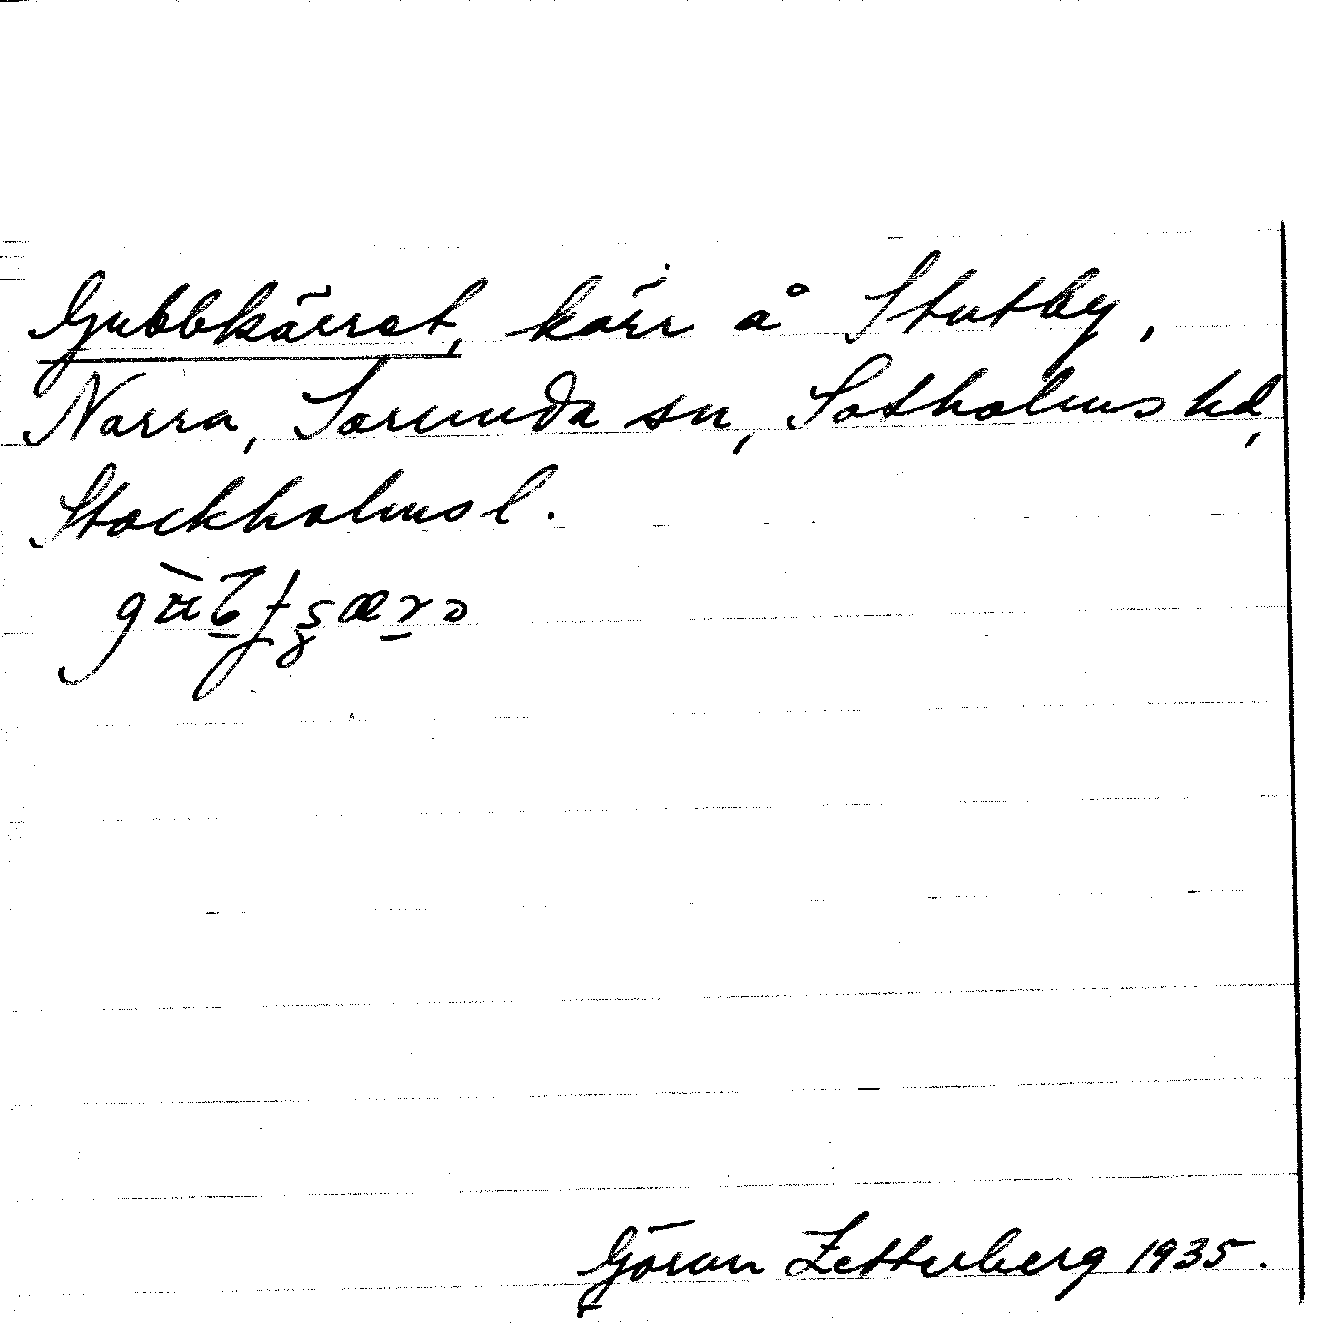 Gubbkärret, kärr å Stutby,
Norra, Sorunda sn, Sotholms hd,
Stockholms l.
Göran Zetterberg 1935.